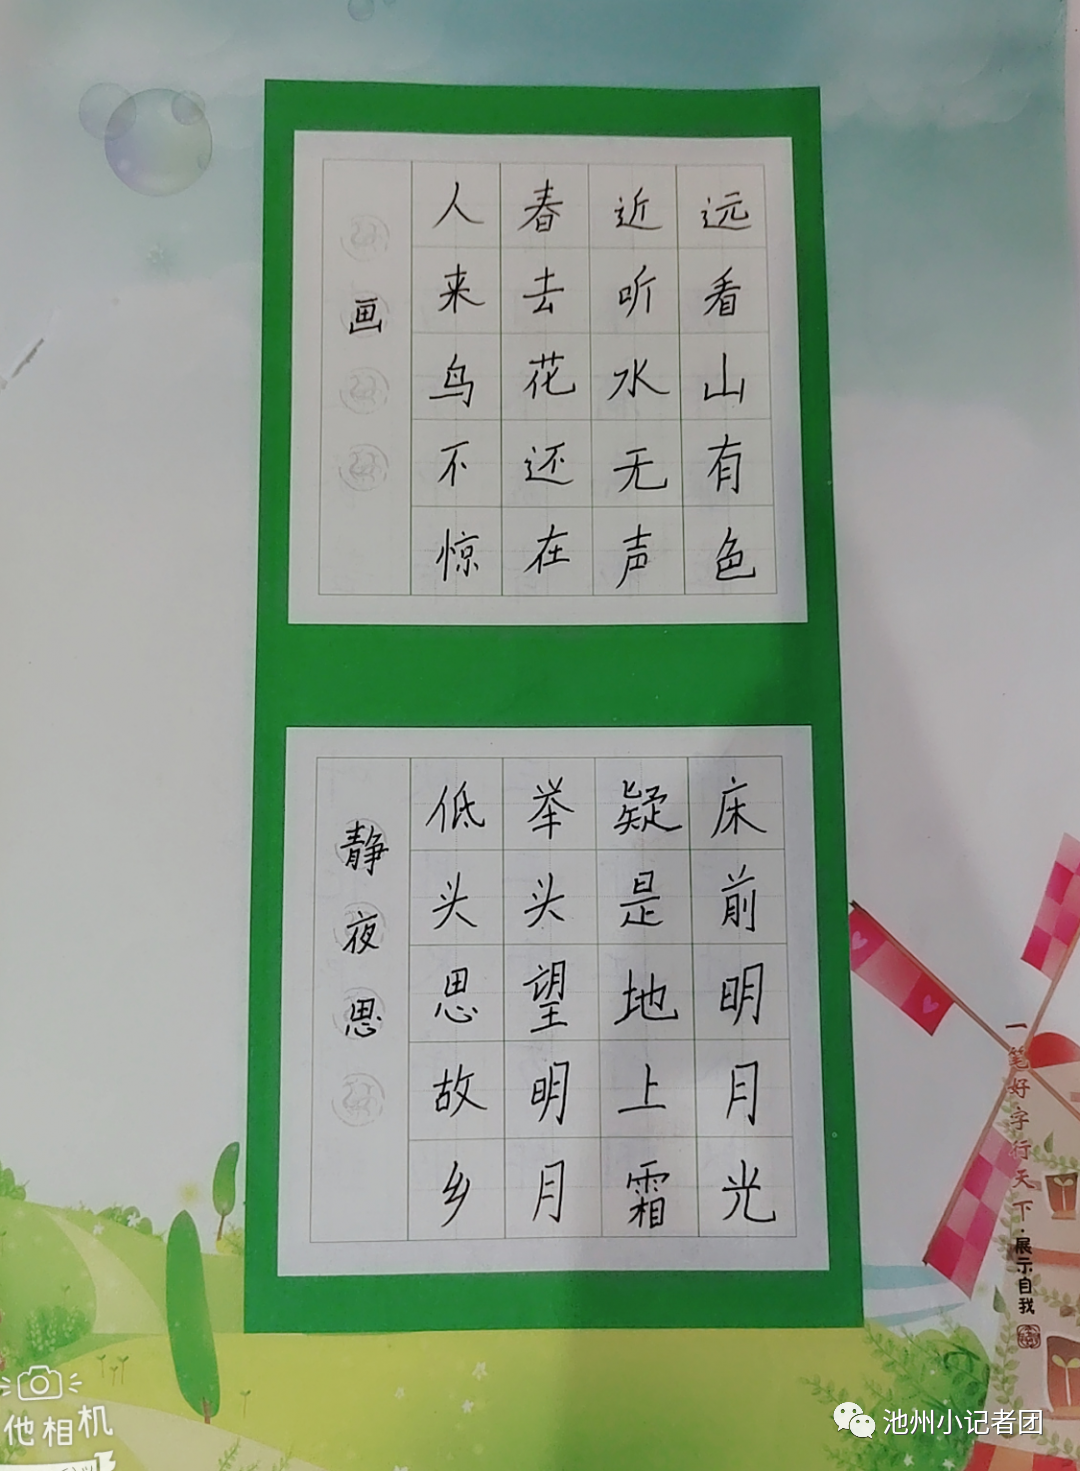 远看山有色
近听水无声
春去花还在
人来鸟不惊
画
床前明月光
疑是地上霜
举头望明月
低头思故乡
静夜思
一笔好字行天下·展示自我
他相机
池州小记者团